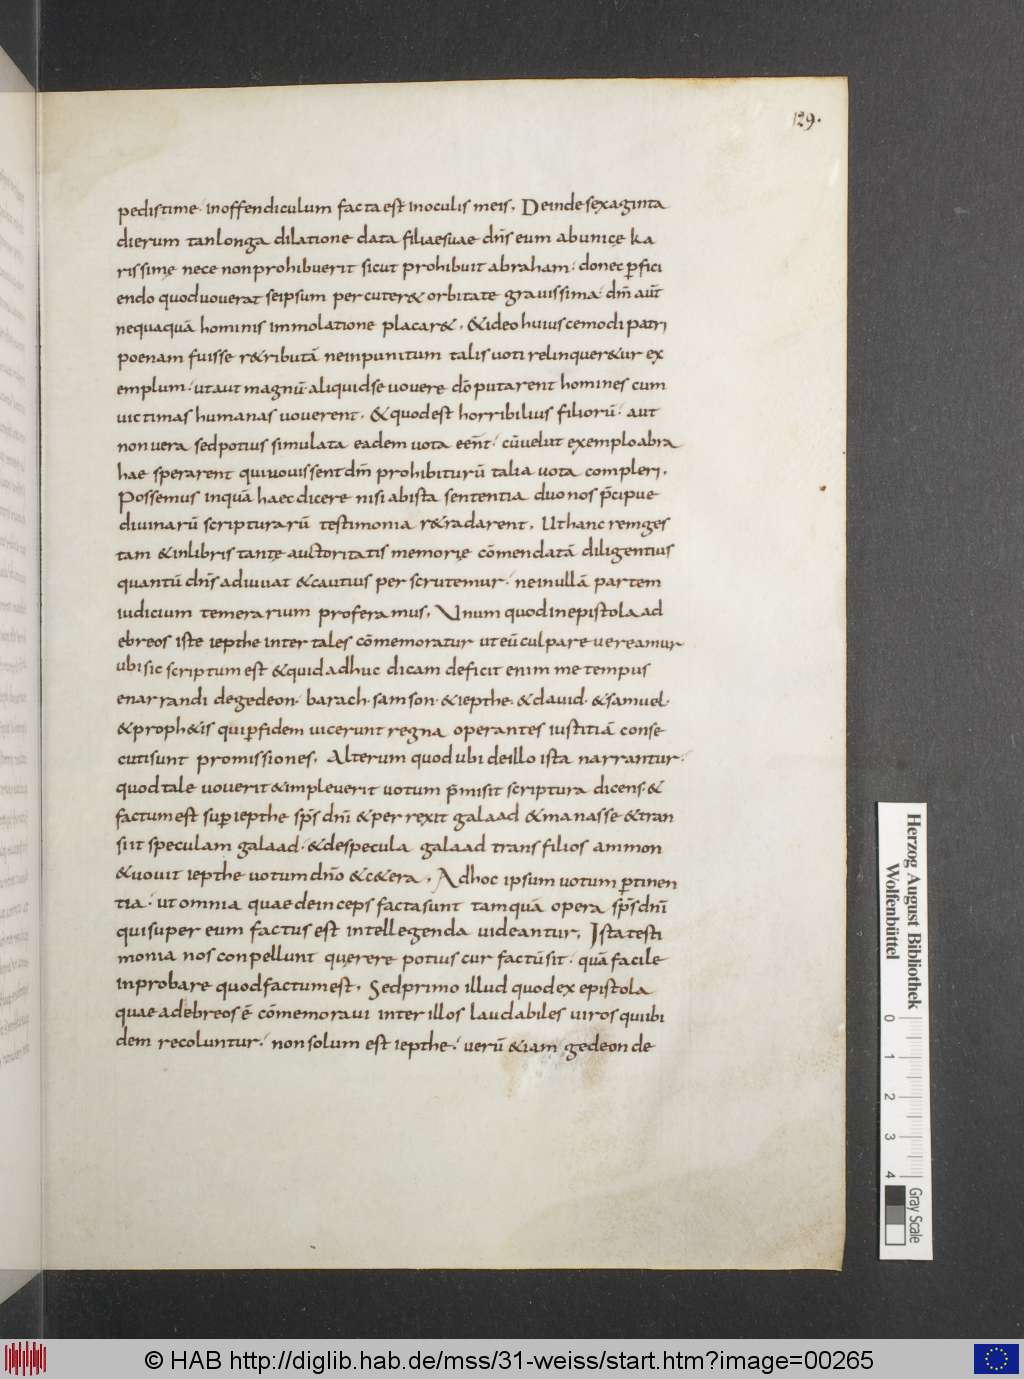 129.
pedistime· inoffendiculum facta est inoculis meis. Deindesexaginta
dierum tanlonga dilatione data filiaesuae dn̄s eum abunicę ka
rissimę nece nonprohibuerit sicut prohibuit abraham· donec ꝑfici
endo quoduouerat seipsum percuter& orbitate grauissima· dm̄ aut̄
nequaquā hominis immolatione placar&. &ideo huiuscemodi patri
poenam fuisse r&ributā neinpunitum talis uoti relinquer&ur ex
emplum· utaut magnū aliquidse uouere dō putarent homines cum
uictimas humanas uouerent. &quodest horribilius filiorū· aut
non uera sedpotius simulata eadem uota eēnt· cūuelut exemploabra
hae sperarent quiuouissentdm̄ prohibiturū talia uota compleri.
Possemus inquā haec dicere nisi abista sententia duo nos p̄cipue
diuinarū scripturarū testimonia r&radarent. Uthanc remges
tam &inlibris tantę auctoritatis memorię cōmendatā diligentius
quantū dn̄s adiuuat &cautius per scrutemur· neinullā partem
iudicium temerarium proferamus. Unum quodinepistola ad
ebreos iste iepthe inter tales cōmemoratur uteū culpare uereamur
ubi sic scriptum est &quid adhuc dicam deficit enim me tempus
enarrandi degedeon· barach· samson· &iepthe· &dauid· &samuel·
&proph&is quiꝑfidem uicerunt regna operantes iustitiā conse
cutisunt promissiones. Alterum quodubi deillo ista narrantur·
quodtale uouerit &impleuerit uotum p̄misit scriptura dicens·&
factumest suꝑ iepthe sp̄s dn̄i &perrexit galaad &manasse &tran
siit speculam galaad· &despecula galaad trans filios ammon
&uouit iepthe uotum dn̄o &c&era. Adhoc ipsum uotum ꝑtinen
tia· ut omnia quae deinceps factasunt tamquā opera sp̄s dn̄i
quisuper eum factus est intellegenda uideantur. Ista testi
monia nos conpellunt quęrere potius cur factūsit· quā facile
inprobare quodfactumest. Sedprimo illud quodex epistola
quae adebreos ē cōmemoraui inter illos laudabiles uiros quiibi
dem recoluntur· nonsolum est iepthe· uerū &iam gedeon de
Herzog August Bibliothek
Wolfenbüttel
0 1 2 3 4
Gray Scale
© HAB http://diglib.hab.de/mss/31-weiss/start.htm?image=00265